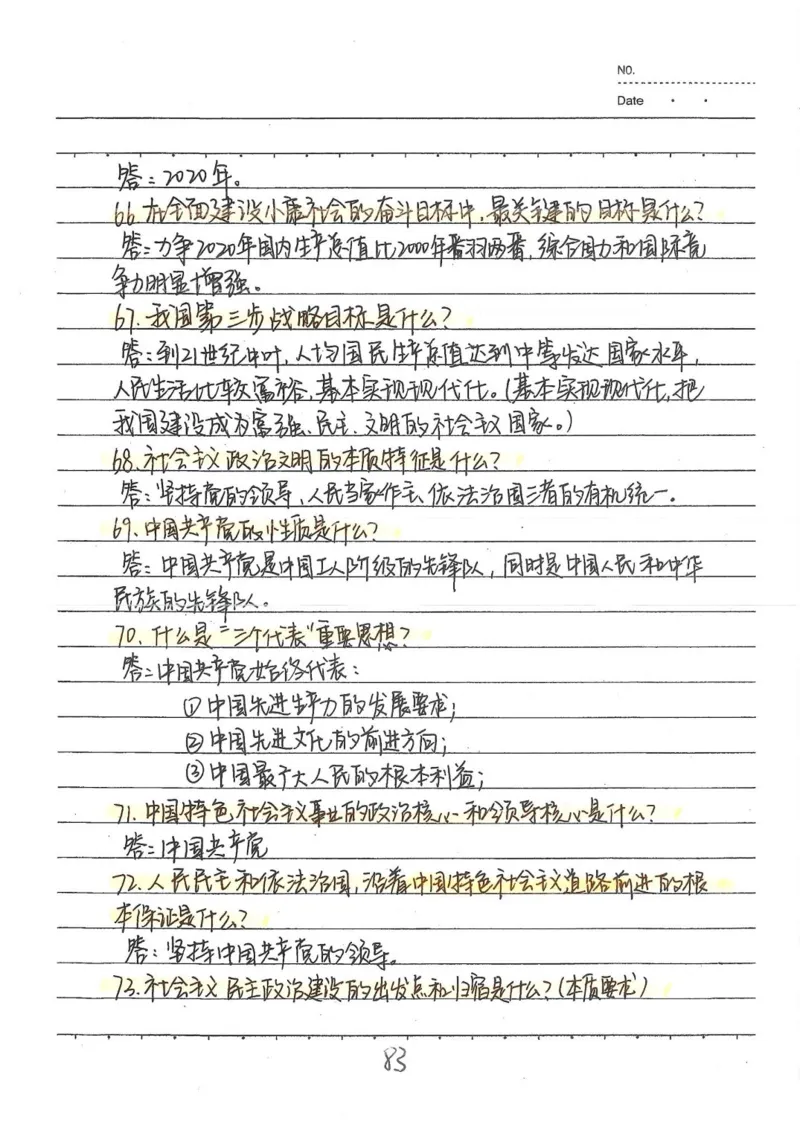 NO.
Date
答：2020年。
66.在全面建设小康社会的奋斗目标中，最关键的目标是什么？
答：力争2020年国内生产总值比2000年番两番，综合国力和国际竞
争力明显增强。
67.我国第三步战略目标是什么？
答：到21世纪中叶，人均国民生产总值达到中等发达国家水平，
人民生活比较富裕，基本实现现代化。（基本实现现代化，把
我国建设成为富强、民主、文明的社会主义国家。）
68.社会主义政治文明的本质特征是什么？
答：坚持党的领导，人民当家作主、依法治国三者的有机统一。
69.中国共产党的性质是什么？
答：中国共产党是中国工人阶级的先锋队，同时是中国人民和中华
民族的先锋队。
70.什么是“三个代表”重要思想？
答：中国共产党始终代表：
①中国先进生产力的发展要求；
②中国先进文化的前进方向；
③中国最广大人民的根本利益；
71.中国特色社会主义事业的政治核心和领导核心是什么？
答：中国共产党
72.人民民主和依法治国，沿着中国特色社会主义道路前进的根
本保证是什么？
答：坚持中国共产党的领导。
73.社会主义民主政治建设的出发点和归宿是什么？（本质要求）
83